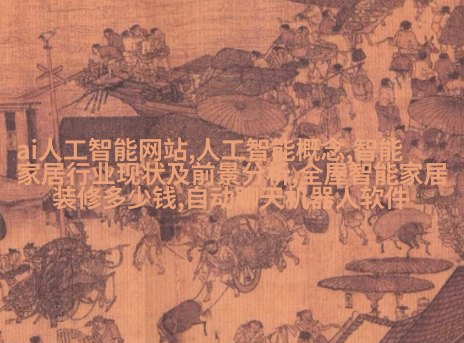 ai人工智能网站,人工智能概念,智能
家居行业现状及前景分析,全屋智能家居
装修多少钱,自动聊天机器人软件